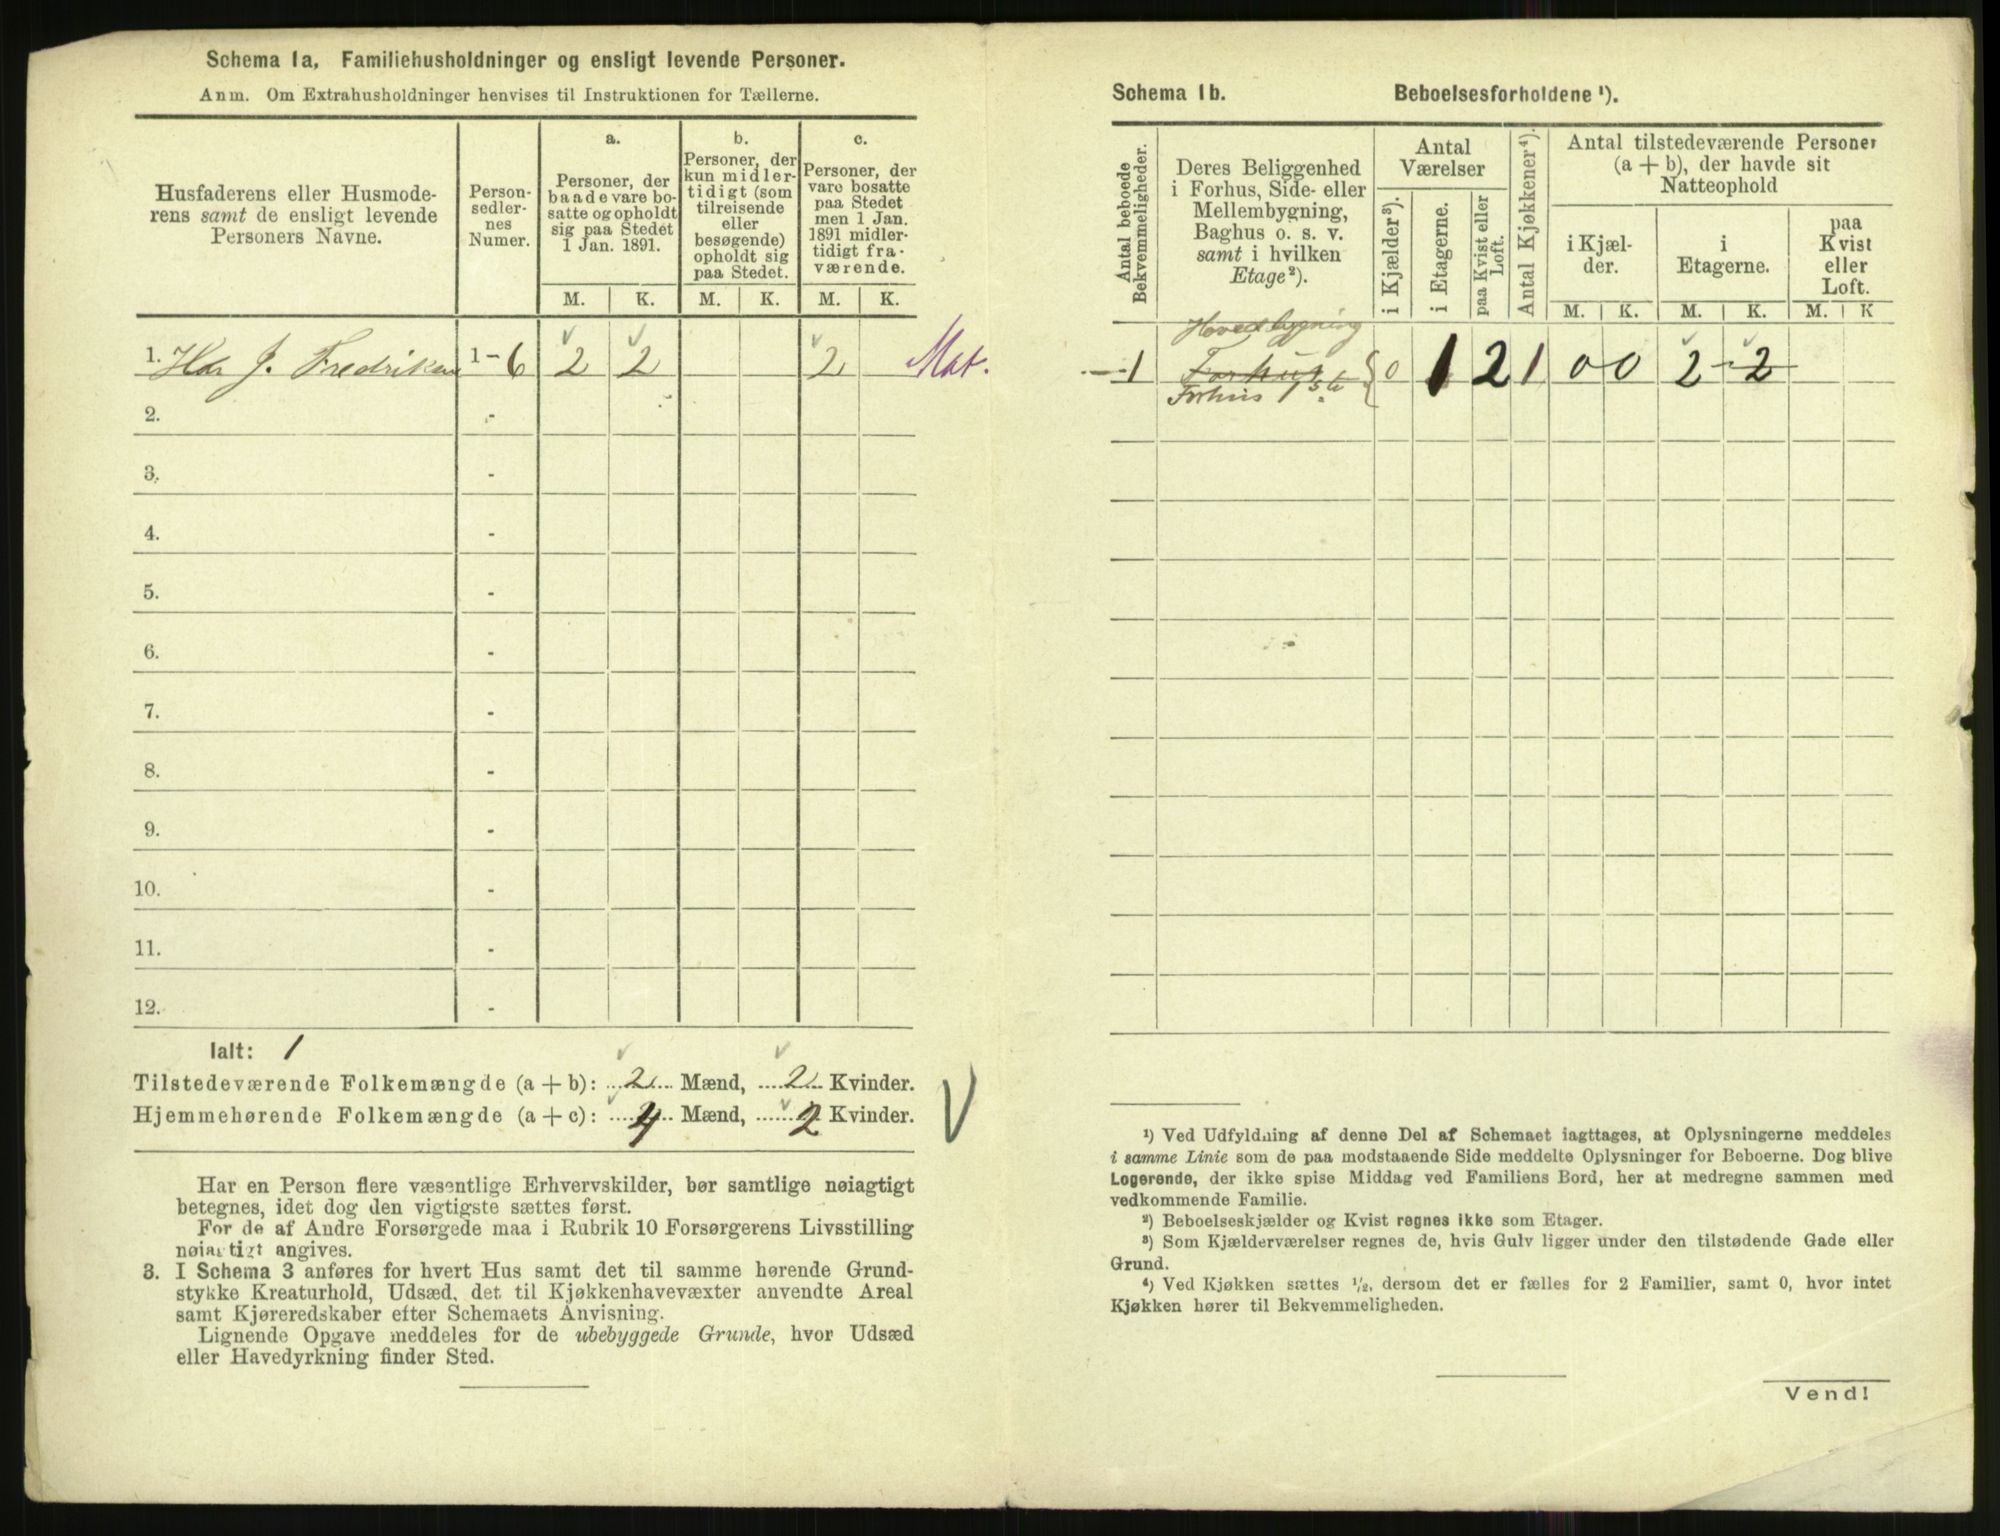 Schema 1a, Familiehusholdninger og ensligt levende Personer.
Anm. Om Extrahusholdninger henvises til Instruktionen for Tællerne.
Husfaderens eller Husmode-
rens samt de ensligt levende
Personers Navne.
Person-
sedler-
nes
Numer.
a.
Personer, der
baade vare bo-
satte og opholdt
sig paa Stedet
1 Jan. 1891.
b.
Personer, der
kun midler-
tidigt (som
tilreisende
eller
besøgende)
opholdt sig
paa Stedet.
c.
Personer, der
vare bosatte
paa Stedet
men 1 Jan.
1891 midler-
tidigt fra-
værende.
M. K. M. K. M. K.
1. J. Fredriksen 1-6 2 2 2 Mat.
2. -
3. -
4. -
5. -
6. -
7. -
8. -
9. -
10. -
11. -
12. -
Ialt: 1
Tilstedeværende Folkemængde (a + b): 2 Mænd, 2 Kvinder.
Hjemmehørende Folkemængde (a + c): 4 Mænd, 2 Kvinder.
Har en Person flere væsentlige Erhvervskilder, bør samtlige nøiagtigt
betegnes, idet dog den vigtigste sættes først.
For de af Andre Forsørgede maa i Rubrik 10 Forsørgerens Livsstilling
nøiagtigt angives.
3. I Schema 3 anføres for hvert Hus samt det til samme hørende Grund-
stykke Kreaturhold, Udsæd, det til Kjøkkenhavevæxter anvendte Areal
samt Kjøreredskaber efter Schemaets Anvisning.
Lignende Opgave meddeles for de ubebyggede Grunde, hvor Udsæd
eller Havedyrkning finder Sted.
Schema 1b. Beboelsesforholdene ¹).
Antal beboede
Bekvemmeligheder.
Deres Beliggenhed
i Forhus, Side- eller
Mellembygning,
Baghus o. s. v.
samt i hvilken
Etage²).
Antal
Værelser
i Kjælder³).
i Etagerne.
paa Kvist eller
Loft.
Antal Kjøkkener⁴).
Antal tilstedeværende Personer
(a + b), der havde sit
Natteophold
i Kjæl-
der.
i
Etagerne.
paa
Kvist
eller
Loft.
M. K. M. K. M. K
Hovedbygning
1 Forhus 0 1 2 1 0 0 2 - 2
Forhus 1 st.
¹) Ved Udfyldning af denne Del af Schemaet iagttages, at Oplysningerne meddeles
i samme Linie som de paa modstaaende Side meddelte Oplysninger for Beboerne. Dog blive
Logerende, der ikke spise Middag ved Familiens Bord, her at medregne sammen med
vedkommende Familie.
²) Beboelseskjælder og Kvist regnes ikke som Etager.
³) Som Kjælderværelser regnes de, hvis Gulv ligger under den tilstødende Gade eller
Grund.
⁴) Ved Kjøkken sættes ½, dersom det er fælles for 2 Familier, samt 0, hvor intet
Kjøkken hører til Bekvemmeligheden.
Vend!